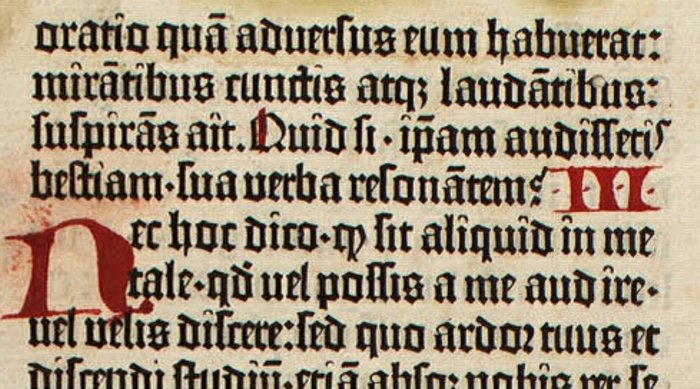 oratio quā aduersus eum habuerat:
mirātibus cunctis atqꝫ laudātibus:
suspirās ait. Quid si · ip̄am audissetis
bestiam · sua uerba resonātem? · III ·
Nec hoc dico · ꝙ sit aliquid in me
tale · qd̄ uel possis a me audire ·
uel velis discere: sed quo ardor tuus et
discendi studiū · etiā absqꝫ nobis per se